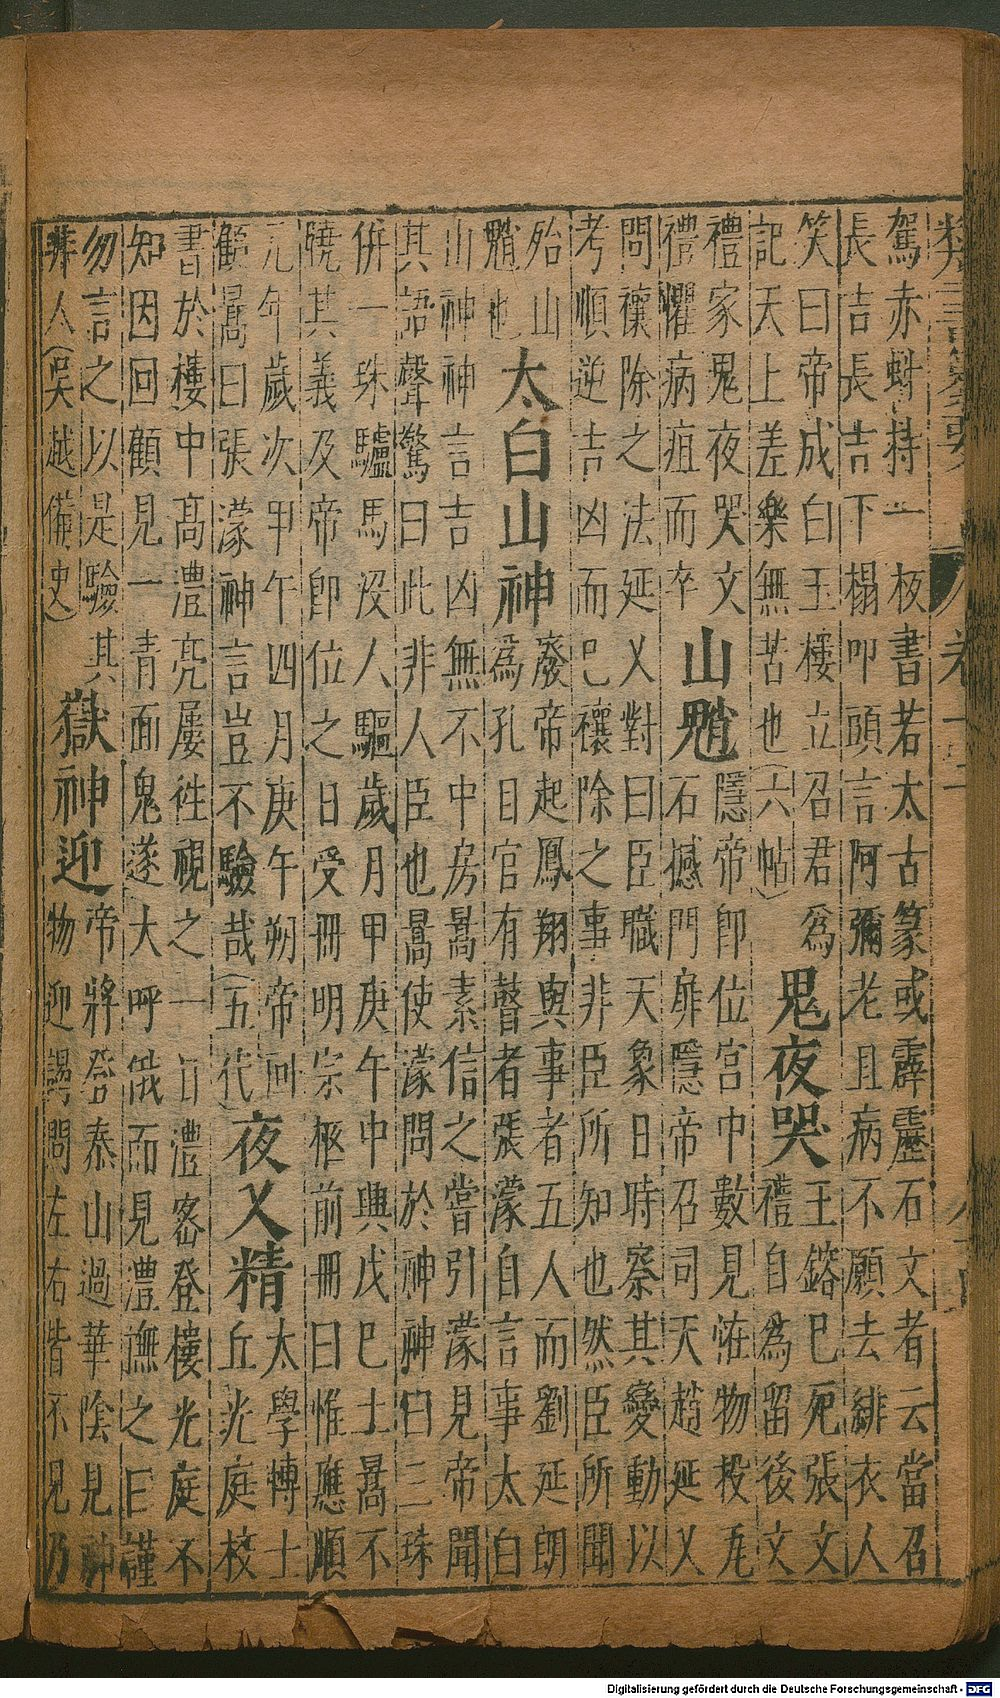 駕赤蚪持一板書若太古篆或霹靂石文者云當召
長吉長吉下榻叩頭言阿彌老且病不願去緋衣人
笑曰帝成白玉樓立召君為
記天上差樂無苦也(六帖)
鬼夜哭
王鎔巳死張文
禮自為留後文
禮家鬼夜哭文
禮懼病疽而卒
山魈
隱帝即位宮中數見怪物投瓦
石撼門扉隱帝召司天趙延乂
問禳除之法延乂對曰臣職天象日時察其變動以
考順逆吉凶而巳禳除之事非臣所知也然臣所聞
殆山
魈也
太白山神
廢帝起鳳翔與事者五人而劉延朗
為孔目官有瞽者張濛自言事太白
山神神言吉凶無不中房暠素信之嘗引濛見帝聞
其語聲驚曰此非人臣也暠使濛問於神神曰三珠
併一珠驢馬沒人驅歲月甲庚午中興戊巳土暠不
曉其義及帝即位之日受冊明宗柩前冊曰惟應順
元年歲次甲午四月庚午朔帝回
顧暠曰張濛神言豈不驗哉(五代)
夜乂精
太學博士
丘光庭校
書於樓中高澧亮屢徃視之一日澧密登樓光庭不
知因回顧見一青面鬼遂大呼俄而見澧撫之曰謹
勿言之以是驗其
非人(吳越備史)
嶽神迎
帝將登泰山過華陰見神
物迎謁問左右皆不見乃
Digitalisierung gefördert durch die Deutsche Forschungsgemeinschaft - DFG